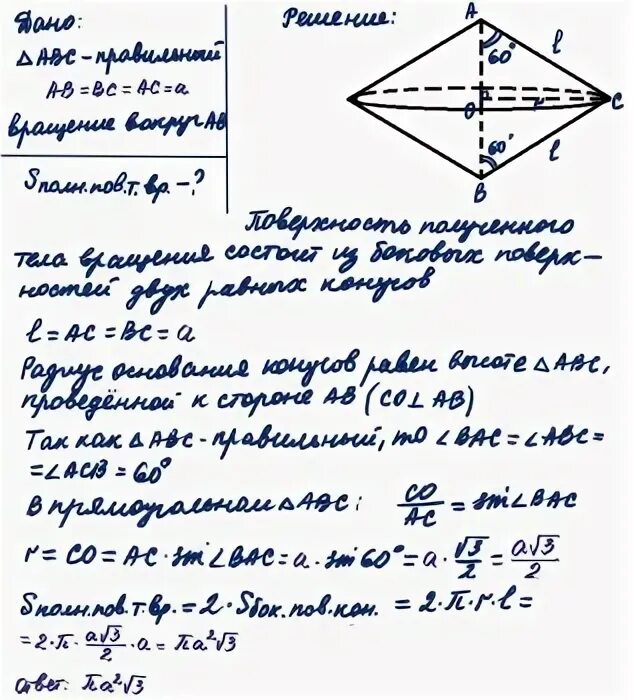 Дано:
△ABC - правильный
AB = BC = AC = a
вращение вокруг AB
Sполн.пов.т.вр. - ?
Решение:
A
60°
l
O
r
C
60°
l
B
Поверхность полученного
тела вращения состоит из боковых поверх-
ностей двух равных конусов
l = AC = BC = a
Радиус основания конусов равен высоте △ABC,
проведённой к стороне AB (CO⊥AB)
Так как △ABC - правильный, то ∠BAC = ∠ABC =
= ∠ACB = 60°
В прямоугольном △ABC: CO/AC = sin∠BAC
r = CO = AC · sin∠BAC = a · sin60° = a · √3/2 = a√3/2
Sполн.пов.т.вр. = 2 · Sбок.пов.кон. = 2 · π · r · l =
= 2 · π · a√3/2 · a = πa²√3
Ответ: πa²√3